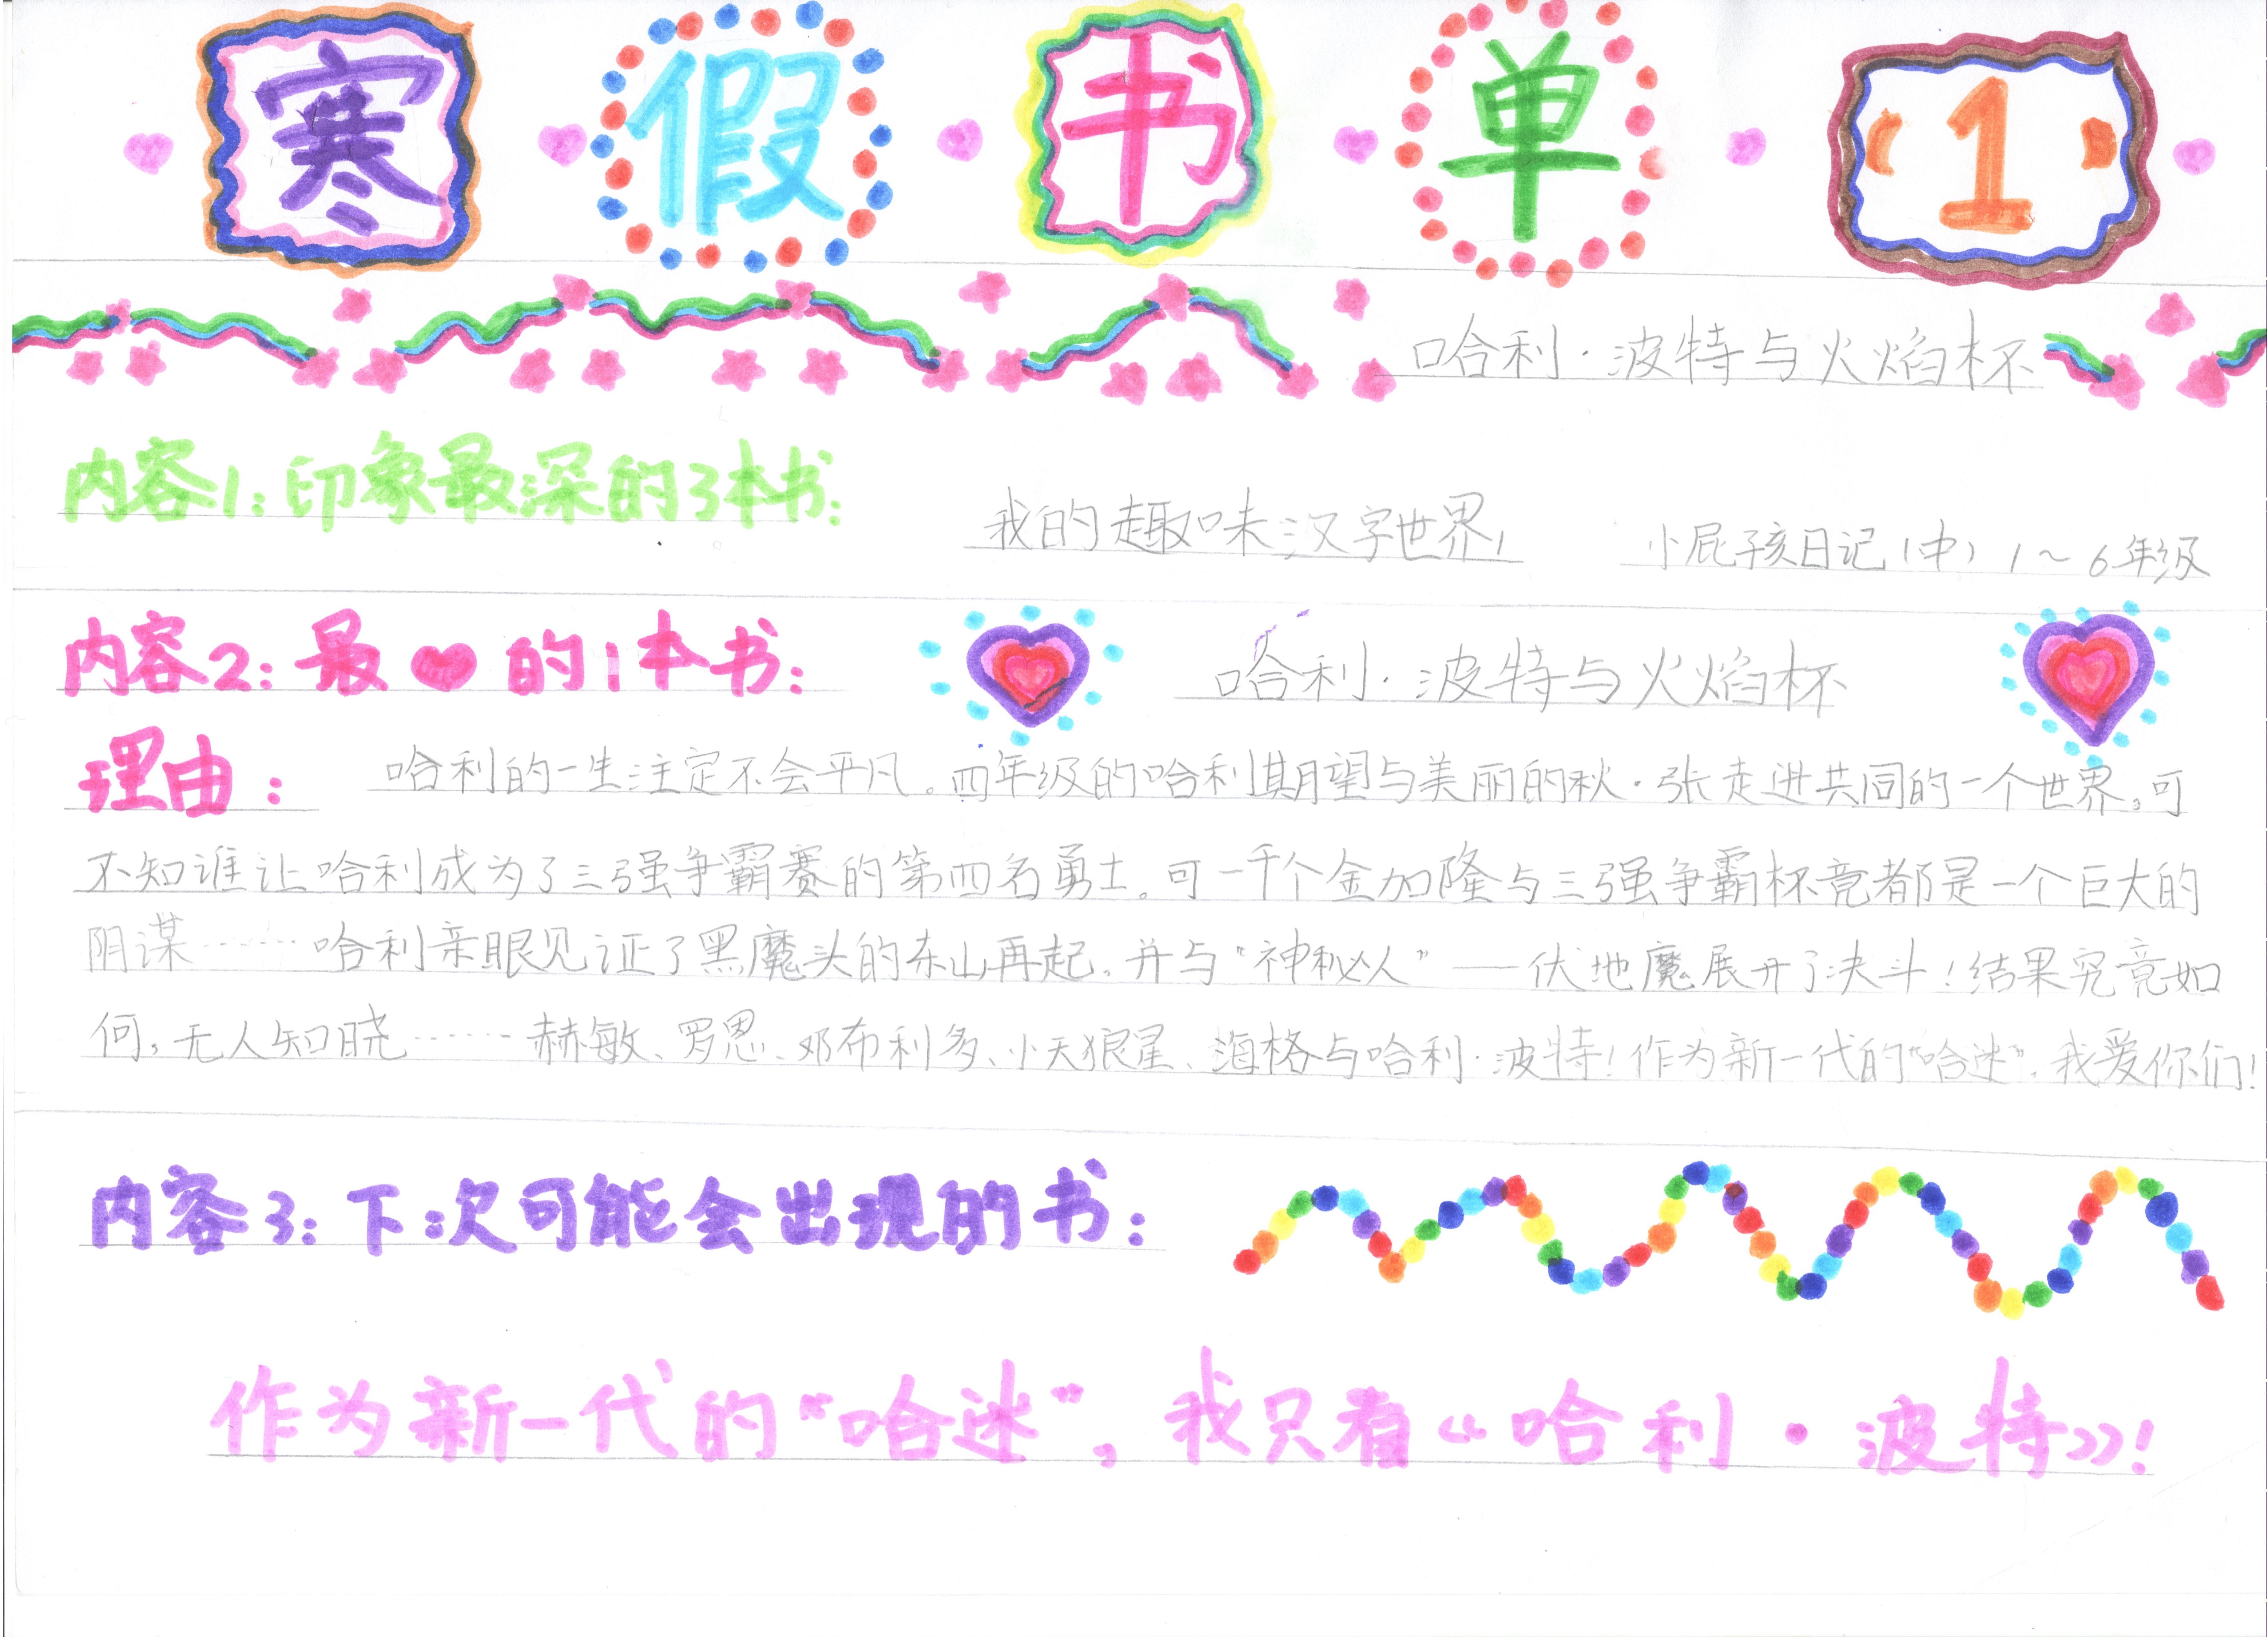 寒假书单(1)
哈利·波特与火焰杯
内容1:印象最深的3本书:
我的趣味汉字世界1 小屁孩日记(中)1~6年级
内容2:最❤的1本书: 哈利·波特与火焰杯
理由: 哈利的一生注定不会平凡。四年级的哈利期望与美丽的秋·张走进共同的一个世界,可
不知谁让哈利成为了三强争霸赛的第四名勇士。可一千个金加隆与三强争霸杯竟都是一个巨大的
阴谋……哈利亲眼见证了黑魔头的东山再起,并与“神秘人”——伏地魔展开了决斗!结果究竟如
何,无人知晓……赫敏、罗恩、邓布利多、小天狼星、海格与哈利·波特!作为新一代的“哈迷”,我爱你们!
内容3:下次可能会出现的书:
作为新一代的“哈迷”,我只看《哈利·波特》!